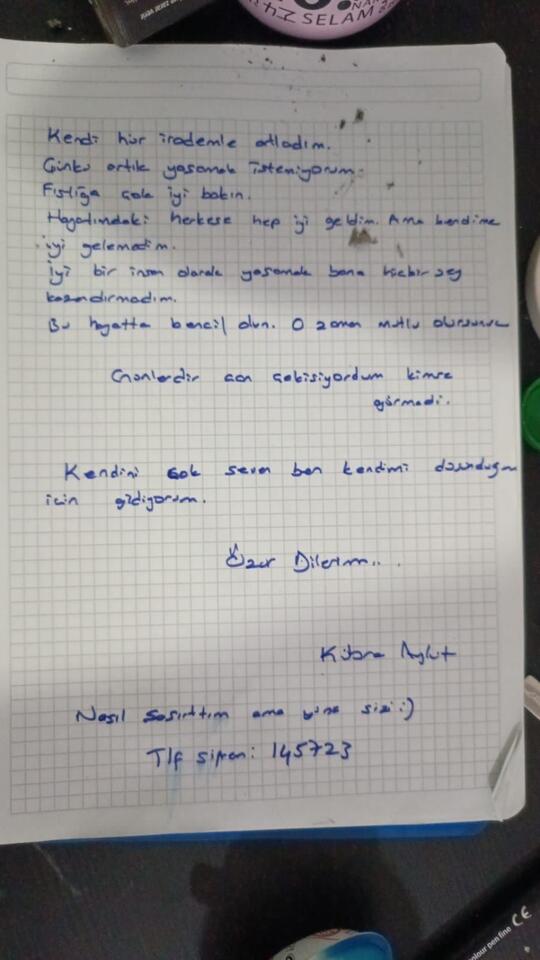 SELAM
Kendi hür irademle atladım.
Çünkü artık yaşamak istemiyorum.
Fıstığa çok iyi bakın.
Hayatımdaki herkese hep iyi geldim. Ama kendime
iyi gelemedim.
İyi bir insan olarak yaşamak bana hiçbir şey
kazandırmadım.
Bu hayatta bencil olun. O zaman mutlu olursunuz
Günlerdir can çekişiyordum kimse
görmedi.
Kendini çok seven ben kendimi
için gidiyorum.
Özür Dilerim...
Nasıl şaşırttım ama yine sizi :)
Tlf şifrem: 145723
colour pen fine CE